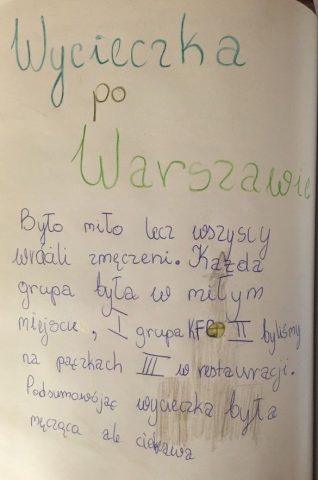 Wycieczka
po
Warszawie
Było miło lecz wszyscy
wrócili zmęczeni. Każda
grupa była w miłym
miejscu, I grupa KFC II byliśmy
na pączkach III w restauracji.
Podsumowójąc wycieczka była
męcząca ale ciekawa